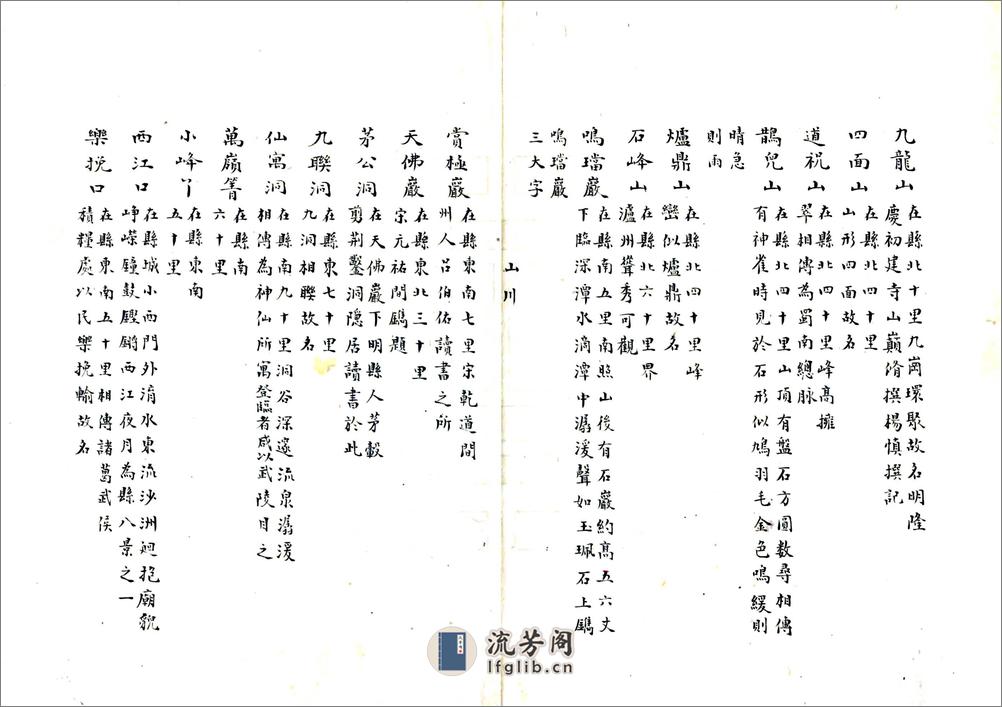 九龍山 在縣北十里九崗環聚故名明隆
慶初建寺山巔脩撰楊慎撰記
四面山 在縣北四十里
山形四面故名
道祝山 在縣北四十里峰高擁
翠相傳為蜀南總脉
鵲兒山 在縣北四十里山頂有盤石方圓數尋相傳
有神雀時見於石形似鳩羽毛金色鳴緩則
晴急
則雨
爐鼎山 在縣北四十里峰
巒似爐鼎故名
石峰山 在縣北六十里界
瀘州聳秀可觀
鳴璫巖 在縣南五里南照山後有石巖約高五六丈
下臨深潭水滴潭中潺湲聲如玉珮石上鐫
鳴璫巖
三大字
山川
賞極巖 在縣東南七里宋乾道間
州人呂伯佑讀書之所
天佛巖 在縣東北三十里
宋元祐間鐫題
茅公洞 在天佛巖下明縣人茅㲄
剪荆鑿洞隐居讀書於此
九聯洞 在縣東七十里
九洞相聯故名
仙寓洞 在縣南九十里洞谷深邃流泉潺湲
相傳為神仙所寓登臨者咸以武陵目之
萬嶺箐 在縣南
六十里
小峰丫 在縣東南
五十里
西江口 在縣城小西門外淯水東流沙洲廻抱廟貌
崢嶸鐘鼓鏗鏘西江夜月為縣八景之一
樂挽口 在縣東南五十里相傳諸葛武侯
積糧處以民樂挽輸故名
流芳阁
lfglib.cn